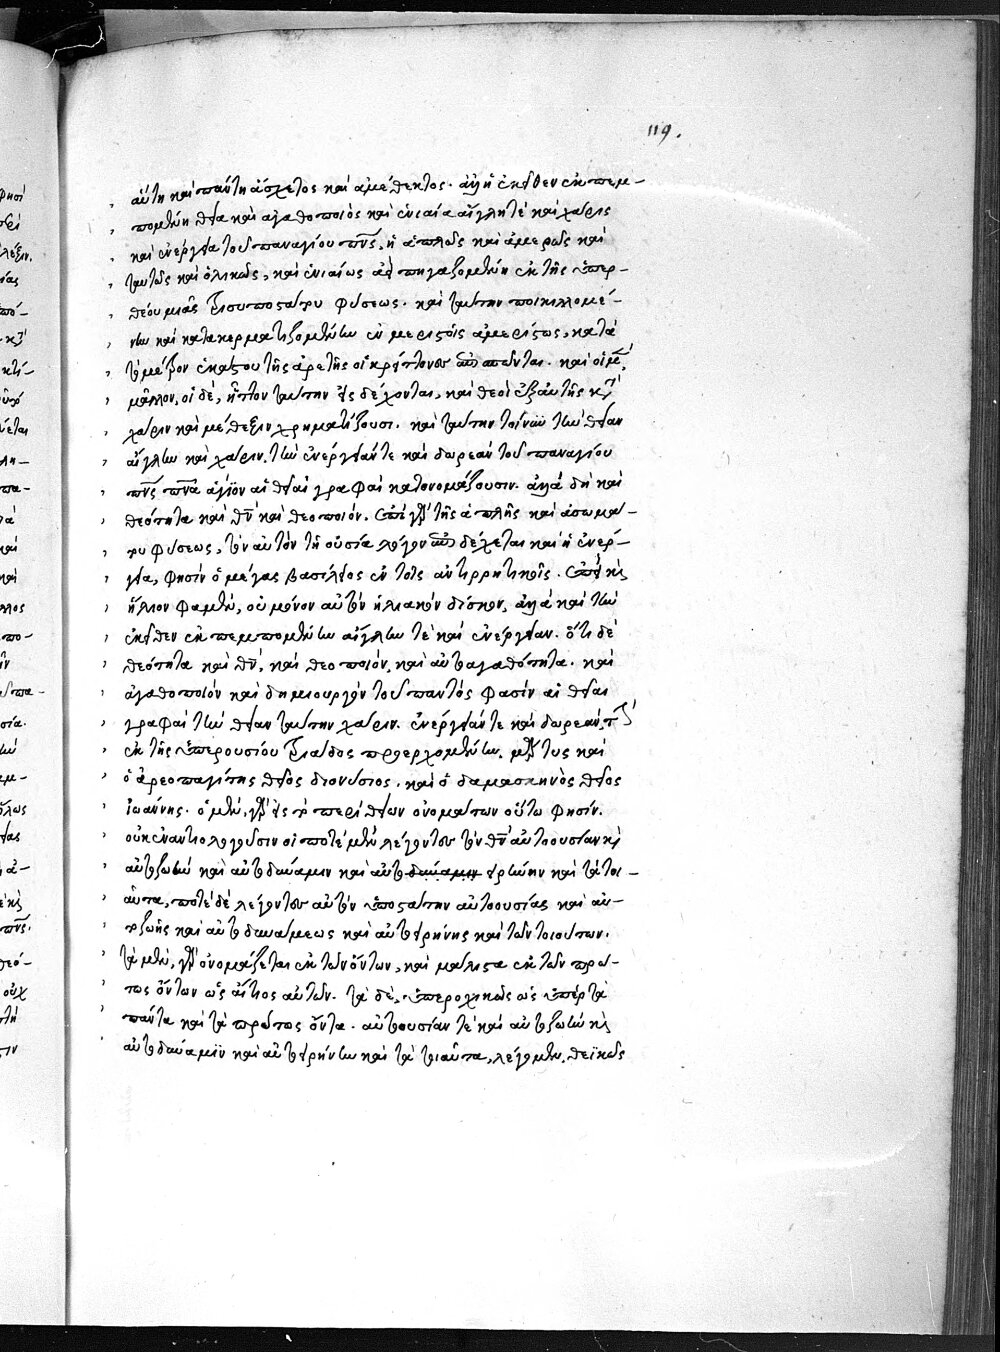 119.
αὕτη καὶ πάντη ἄσχετος καὶ ἀμέθεκτος. ἀλλ' ἡ ἐκεῖθεν ἐκπεμ-
πομένη θεία καὶ ἀγαθοποιὸς καὶ ἑνιαία αἴγλη τὲ καὶ χάρις
καὶ ἐνέργεια τοῦ παναγίου πνς, ἡ ἁπλῶς καὶ ἀμερῶς καὶ
καὶ ὁλικῶς, καὶ ἑνιαίως πηγαζομένη ἐκ τῆς ὑπερ-
θέου μιᾶς τρισυποστάτου φύσεως. καὶ ταύτην ποικιλλομέ-
νην καὶ κατακερματιζομένην ἐν μεριστοῖς ἀμερίστως, κατὰ
τὸ μέτρον ἑκάστου τῆς ἀρετῆς οἱ κρείττονες καὶ οἱ μ
μᾶλλον, οἱ δὲ, ἧττον ταύτην εἰσδέχονται, καὶ θεοὶ ἐξ αὐτῆς κτ
χάριν καὶ μέθεξιν χρηματίζουσι. καὶ ταύτην τοίνυν τὴν θείαν
αἴγλην καὶ χάριν, τὴν ἐνέργειάν τε καὶ δωρεὰν τοῦ παναγίου
πνς πνα ἅγιον αἱ θεῖαι γραφαὶ κατονομάζουσιν. ἀλλὰ δὴ καὶ
θεότητα καὶ θν καὶ θεοποιόν. ἐπὶ γὰρ τῆς ἁπλῆς καὶ ἀσωμά-
του φύσεως, τὸν αὐτὸν τῇ οὐσίᾳ λόγον ἐπιδέχεται καὶ ἡ ἐνέρ-
γεια, φησὶν ὁ μέγας βασίλειος ἐν τοῖς ἀντιρρητικοῖς.
ἥλιον φαμὲν, οὐ μόνον αὐτὸν ἡλιακὸν δίσκον, ἀλλὰ καὶ τὴν
ἐκεῖθεν ἐκπεμπομένην αἴγλην τὲ καὶ ἐνέργειαν. ὅτι δὲ
θεότητα καὶ θν, καὶ θεοποιὸν, καὶ αὐτοαγαθότητα. καὶ
ἀγαθοποιὸν καὶ δημιουργὸν τοῦ παντὸς φασὶν αἱ θεῖαι
γραφαὶ τὴν θείαν ταύτην χάριν. ἐνέργειάν τε καὶ δωρεὰν, τ
ἐκ τῆς ὑπερουσίου τριάδος προερχομένην, μάρτυς καὶ
ὁ ἀρεοπαγίτης θεῖος διονύσιος, καὶ ὁ δαμασκηνὸς θεῖος
ἰωάννης. ὁ μὲν, γὰρ εἰς τὸ περὶ θείων ὀνομάτων οὕτω φησίν.
οὐκ ἐναντιολογοῦσιν οἱ ποτὲ μὲν λέγοντες τὸν θν αὐτοουσίαν κὶ
αὐτοζωὴν καὶ αὐτοδύναμιν καὶ αὐτο δύναμιν εἰρήνην καὶ τὰ τοι-
αῦτα, ποτὲ δὲ λέγοντες αὐτὸν ὑποστάτην αὐτοουσίας καὶ αὐ-
τοζωῆς καὶ αὐτοδυνάμεως καὶ αὐτοειρήνης καὶ τῶν τοιούτων.
τὰ μὲν, γὰρ ὀνομάζεται ἐκ τῶν ὄντων, καὶ μάλιστα ἐκ τῶν πρώ-
τως ὄντων ὡς αἴτιος αὐτῶν. τὰ δὲ, ὑπεροχικῶς ὡς ὑπὲρ τὰ
πάντα καὶ τὰ πρώτως ὄντα. αὐτοουσίαν τὲ καὶ αὐτοζωὴν κὶ
αὐτοδύναμιν καὶ αὐτοειρήνην καὶ τὰ τοιαῦτα, λέγομεν, θεϊκῶς